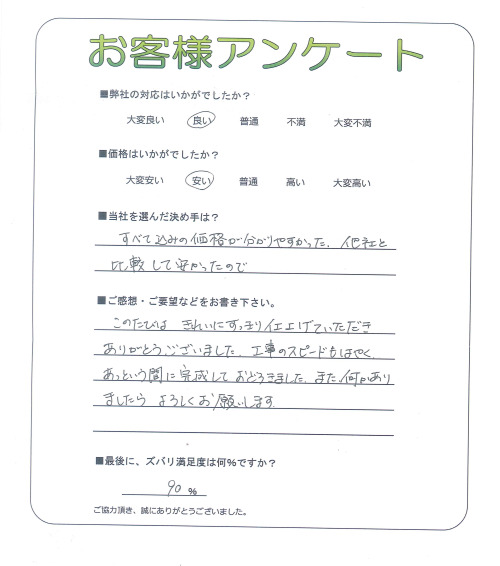 お客様アンケート
■弊社の対応はいかがでしたか？
大変良い 良い 普通 不満 大変不満
■価格はいかがでしたか？
大変安い 安い 普通 高い 大変高い
■当社を選んだ決め手は？
すべて込みの価格が分かりやすかった、他社と
比較して安かったので
■ご感想・ご要望などをお書き下さい。
このたびは きれいにすっきり仕上げていただき
ありがとうございました。工事のスピードもはやく
あっという間に完成しておどろきました。また何かあり
ましたら よろしくお願いします。
■最後に、ズバリ満足度は何％ですか？
90 %
ご協力頂き、誠にありがとうございました。